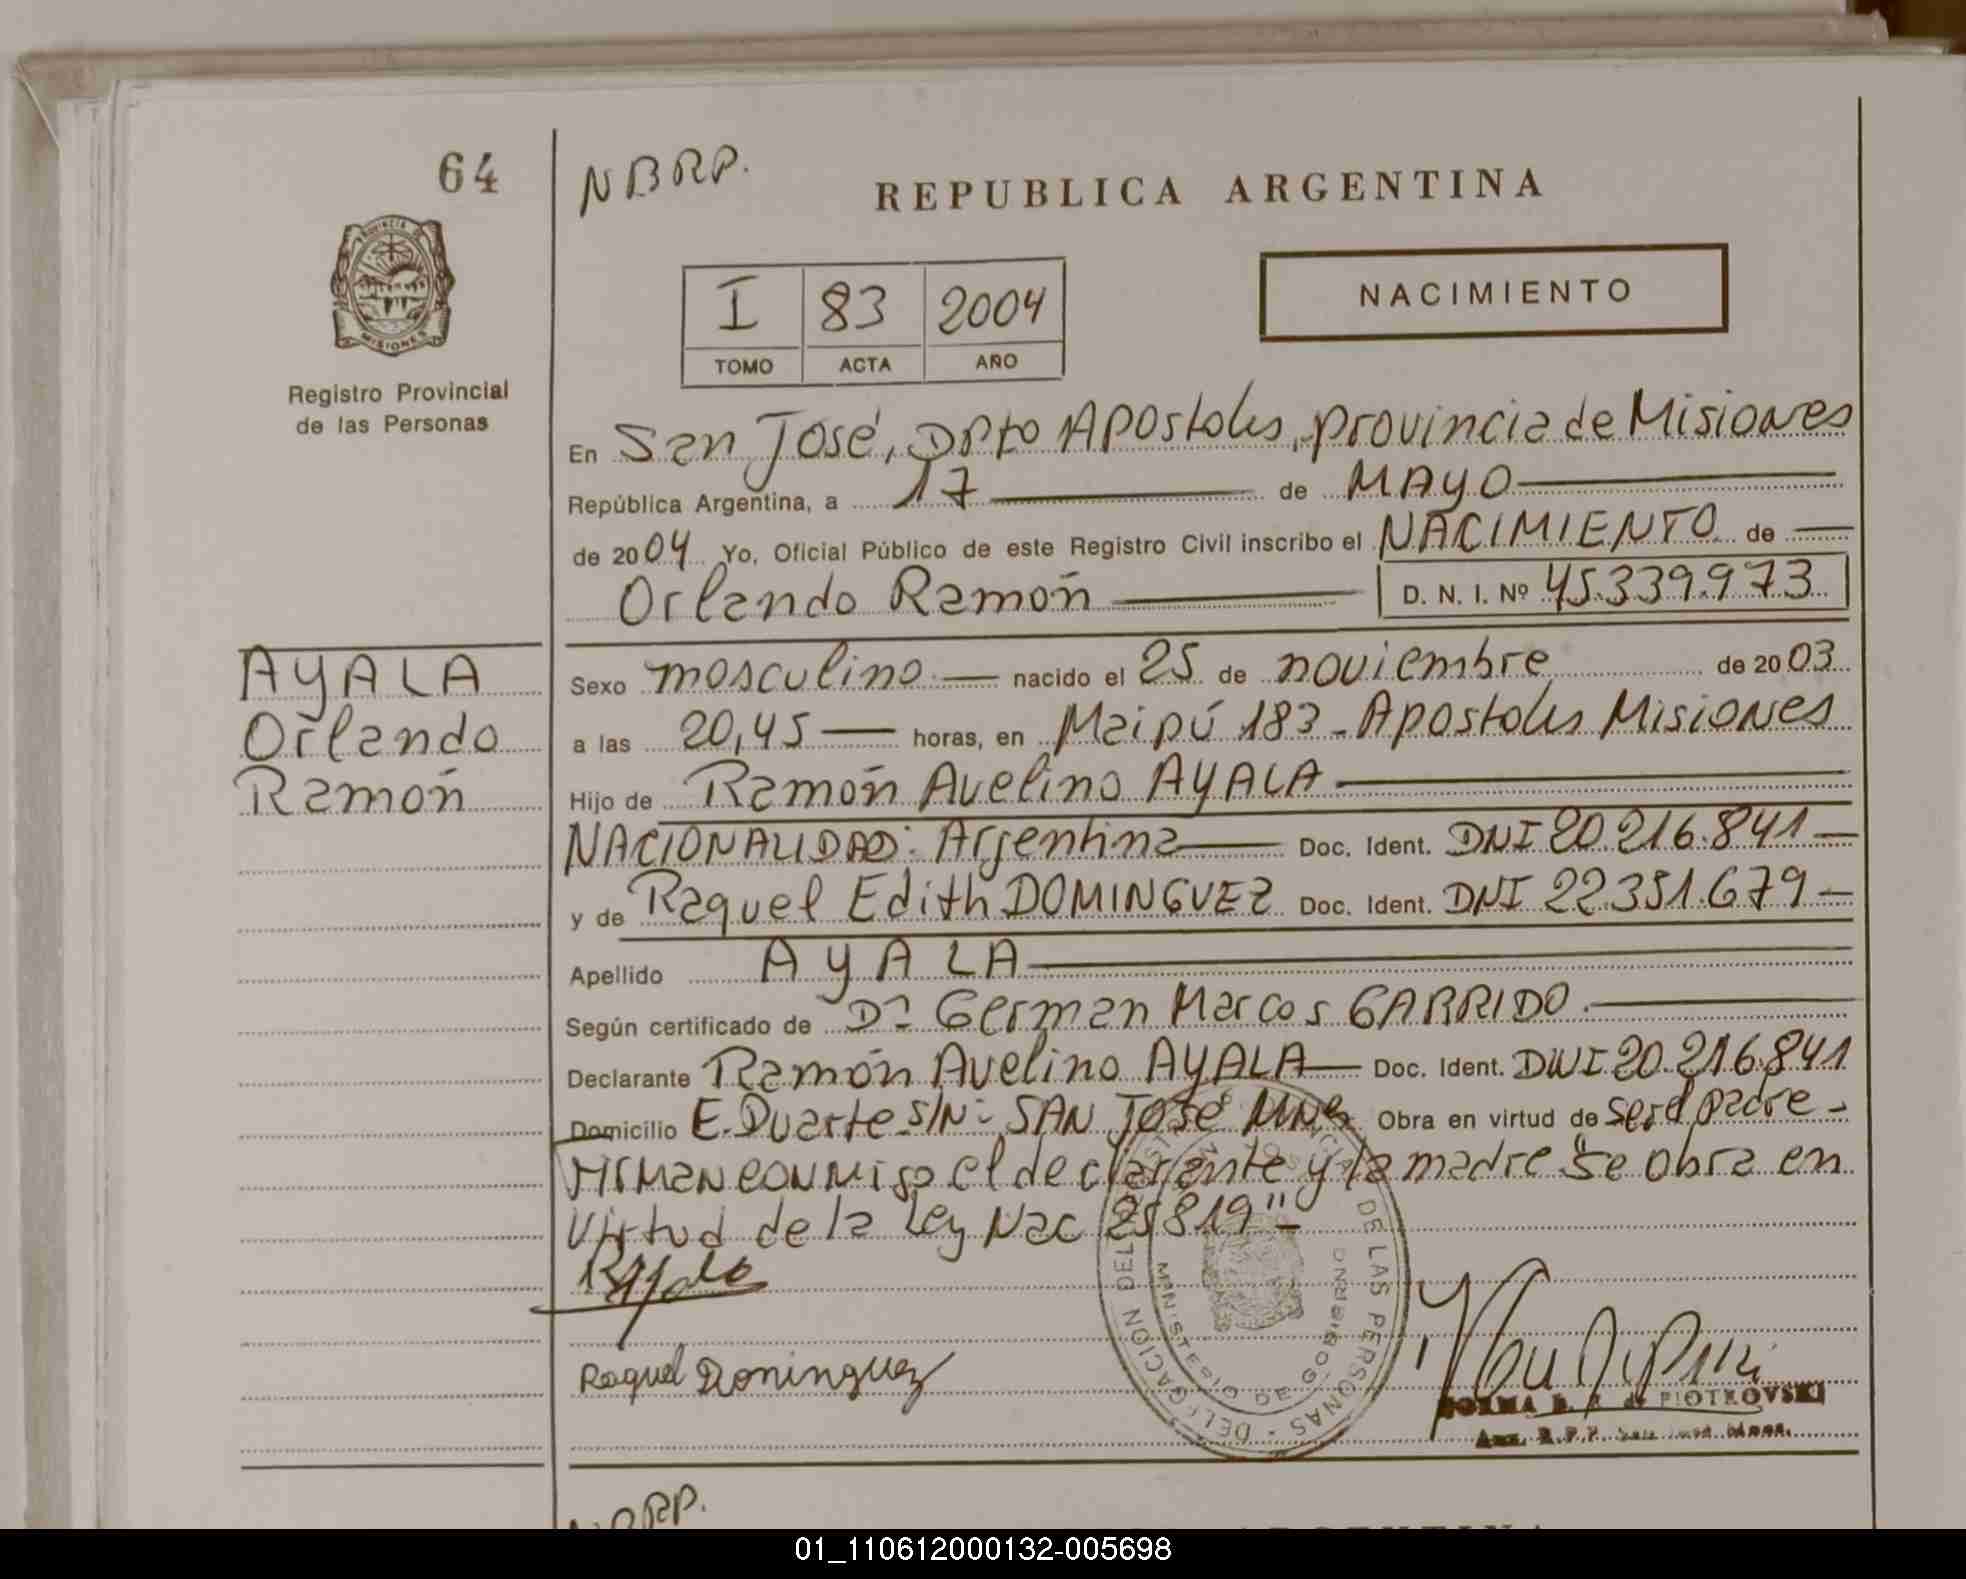 64
NBRP.
REPUBLICA ARGENTINA
PROVINCIA DE
MISIONES
Registro Provincial
de las Personas
I 83 2004
TOMO ACTA AÑO
NACIMIENTO
En San José, Dpto Apostoles, provincia de Misiones
República Argentina, a 17 de MAYO
de 2004 Yo, Oficial Público de este Registro Civil inscribo el NACIMIENTO de
Orlando Ramón D. N. I. Nº 45.339.973
AYALA
Orlando
Ramón
Sexo masculino nacido el 25 de noviembre de 2003
a las 20,45 horas, en Maipú 183 - Apostoles Misiones
Hijo de Ramón Avelino AYALA
NACIONALIDAD: Argentina Doc. Ident. DNI 20.216.841
y de Raquel Edith DOMINGUEZ Doc. Ident. DNI 22.351.679
Apellido AYALA
Según certificado de Dr German Marcos GARRIDO.
Declarante Ramón Avelino AYALA Doc. Ident. DNI 20.216.841
Domicilio E. Duarte S/Nº SAN José Mnes Obra en virtud de ser el padre -
Firman conmigo el declarante y la madre "Se obra en
virtud de la Ley Nac 25819"
Raquel Dominguez
DELEGACION DE LAS PERSONAS
MINISTERIO DE GOBIERNO
NORMA B. de PIOTROVSKI
Aux. R.P.P. San José Mnes.
NBRP.
ARGENTINA
01_110612000132-005698